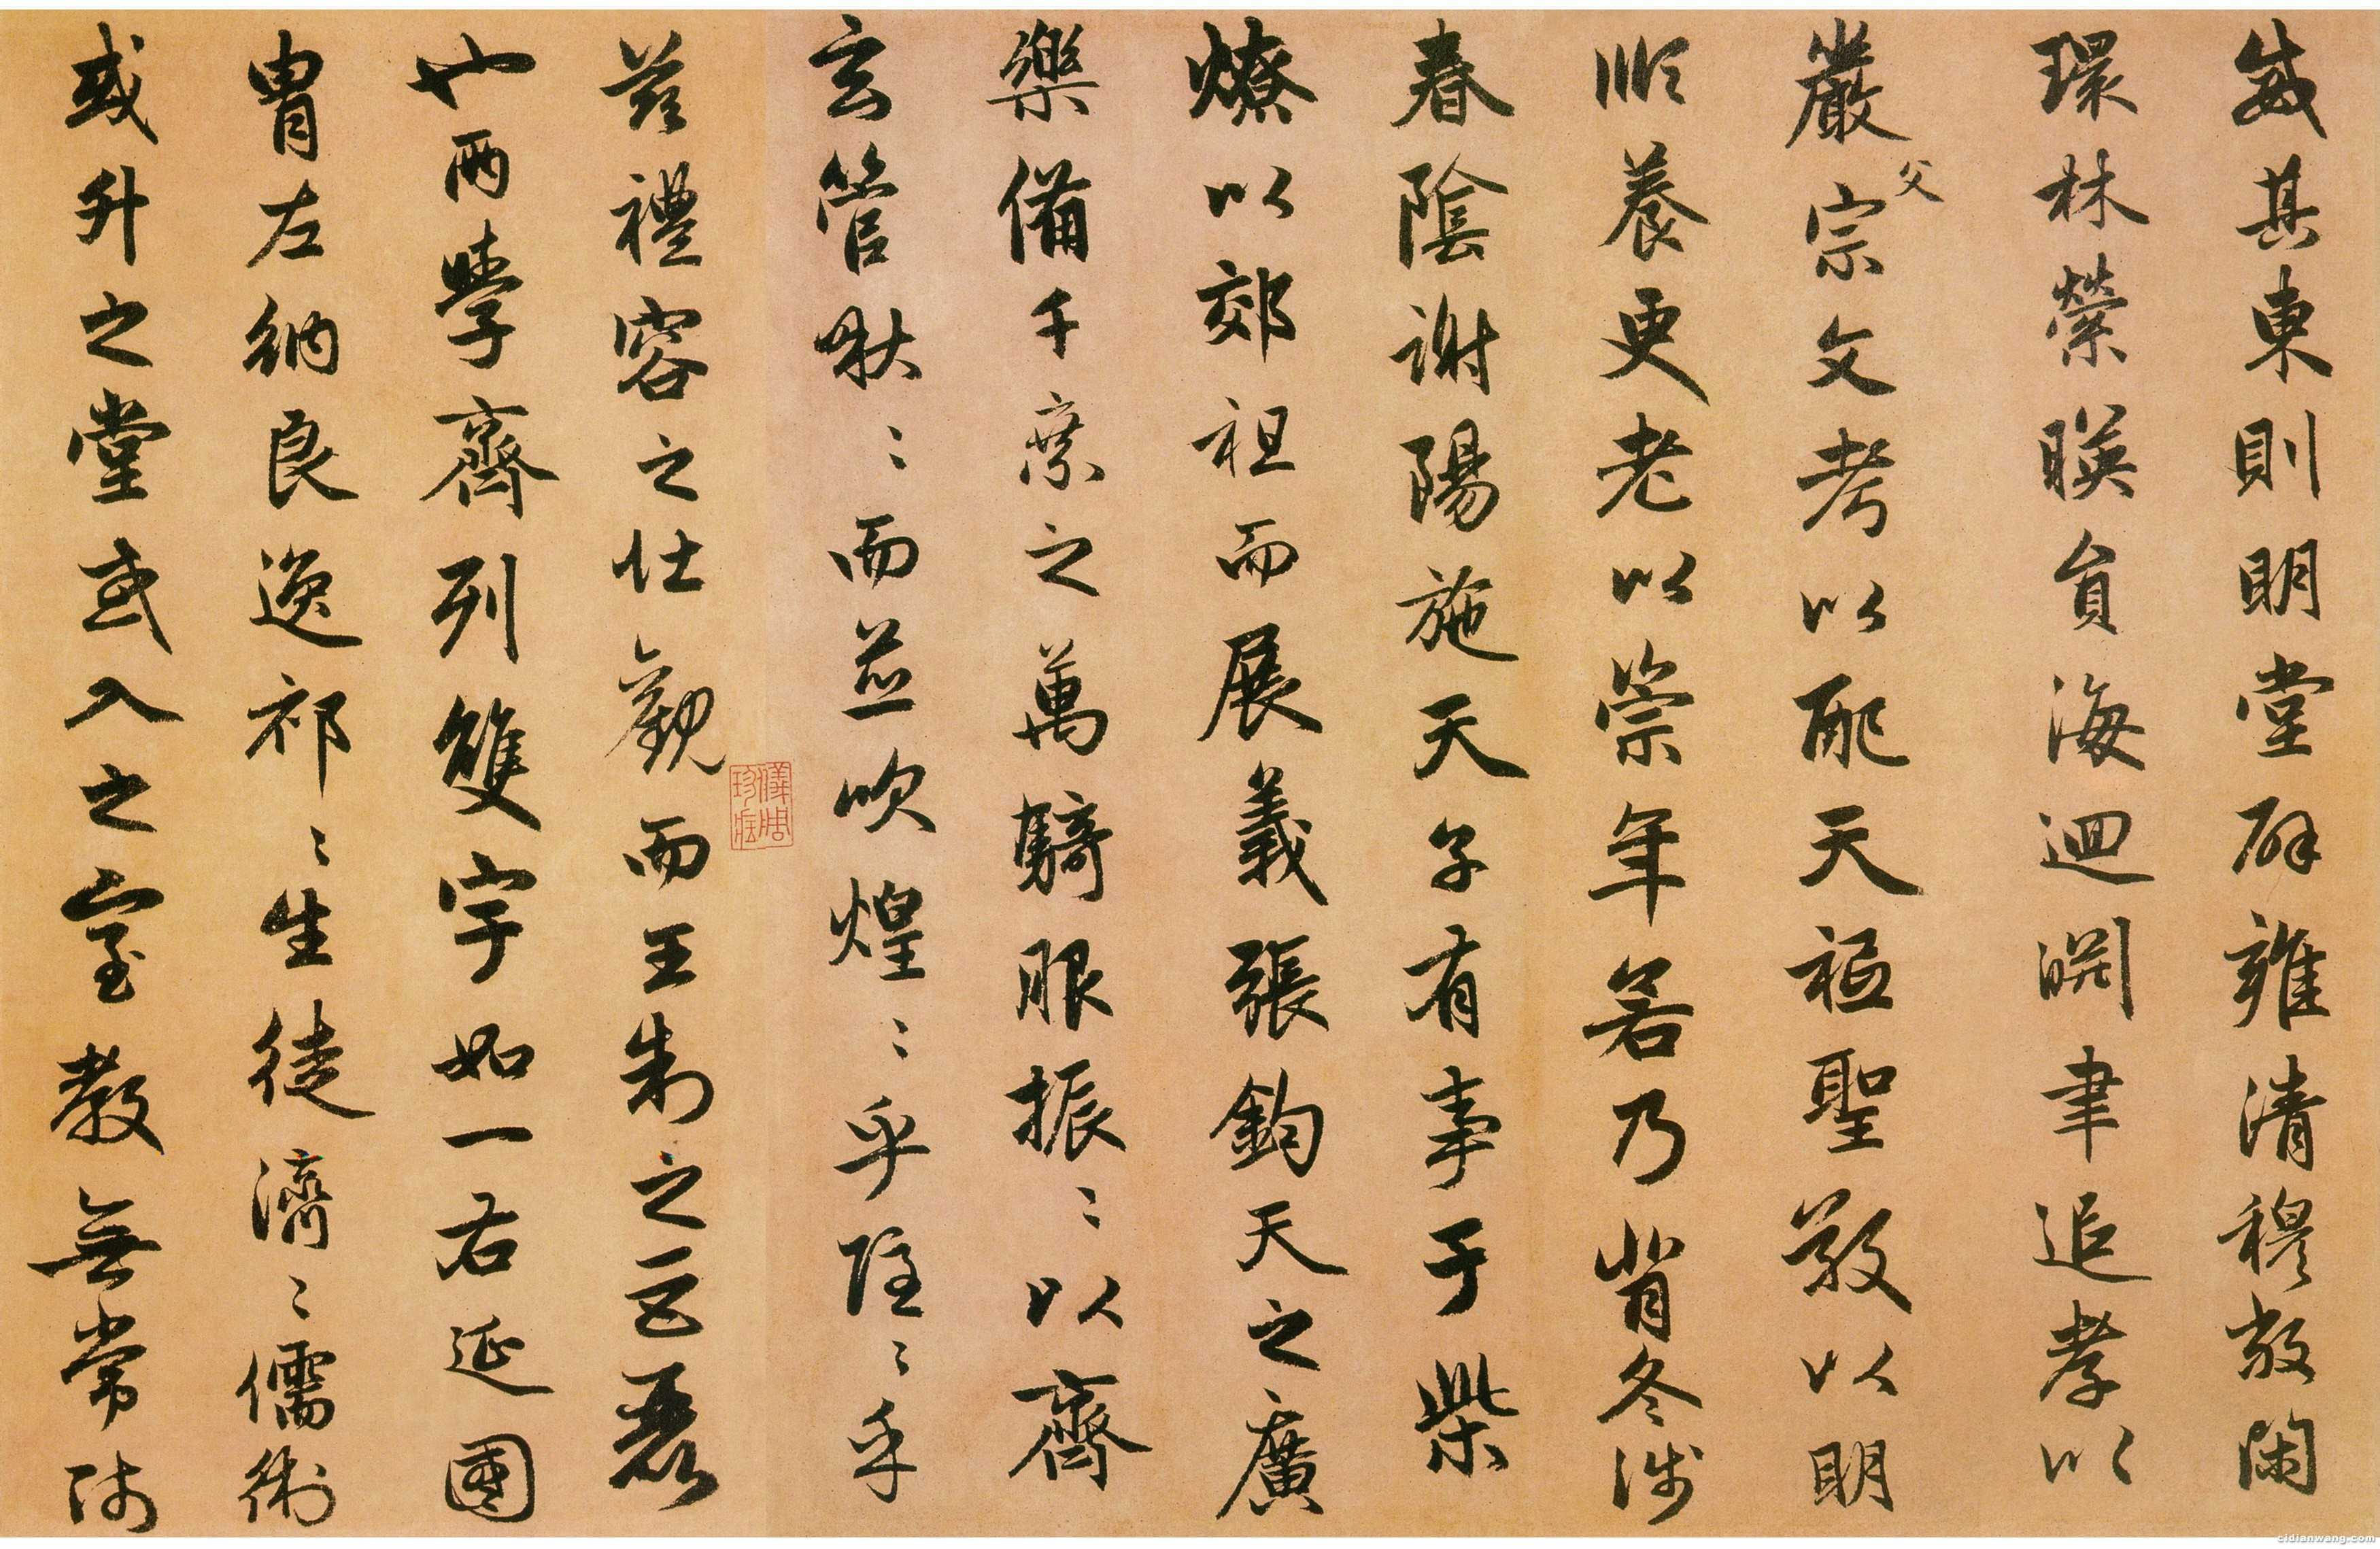 威其東則明堂辟雍清穆敞閑
環林縈暎員海迴淵聿追孝以
嚴父宗文考以配天祗聖敬以明
順養更老以崇年若乃背冬涉
春陰謝陽施天子有事于柴
燎以郊祖而展義張鈞天之廣
樂備千乘之萬騎服振〻以齊
玄管啾〻而並吹煌〻乎隱〻乎
茲禮容之壯觀而王制之巨麗
也兩學齊列雙宇如一右延國
胄左納良逸祁〻生徒濟〻儒術
或升之堂或入之室教無常師
儀周珍藏
cidianwang.com